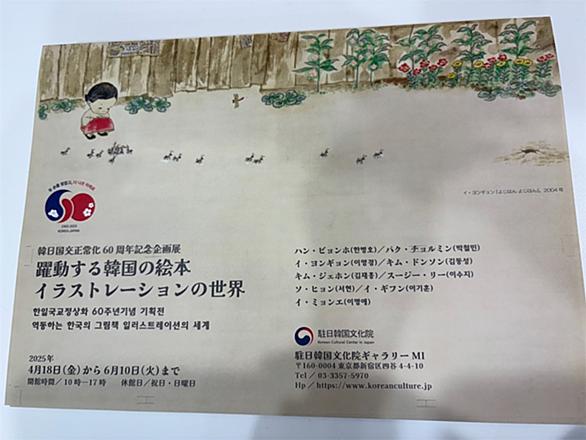 イ・ヨンギョン『よじはん よじはん』、2004年
1965-2025
KOREA-JAPAN
韓日国交正常化60周年記念企画展
躍動する韓国の絵本
イラストレーションの世界
한일국교정상화 60주년기념 기획전
역동하는 한국의 그림책 일러스트레이션의 세계
2025年
4月18日(金)から6月10日(火)まで
開館時間/10時ー17時 休館日/祝日・日曜日
ハン・ビョンホ(한병호)/パク・チョルミン(박철민)
イ・ヨンギョン(이영경)/キム・ドンソン(김동성)
キム・ジェホン(김재홍)/スージー・リー(이수지)
ソ・ヒョン(서현)/イ・ギフン(이기훈)
イ・ミョンエ(이명애)
駐日韓国文化院
Korean Cultural Center in Japan
駐日韓国文化院ギャラリーMI
〒160-0004 東京都新宿区四谷4-4-10
Tel / 03-3357-5970
Hp / https://www.koreanculture.jp